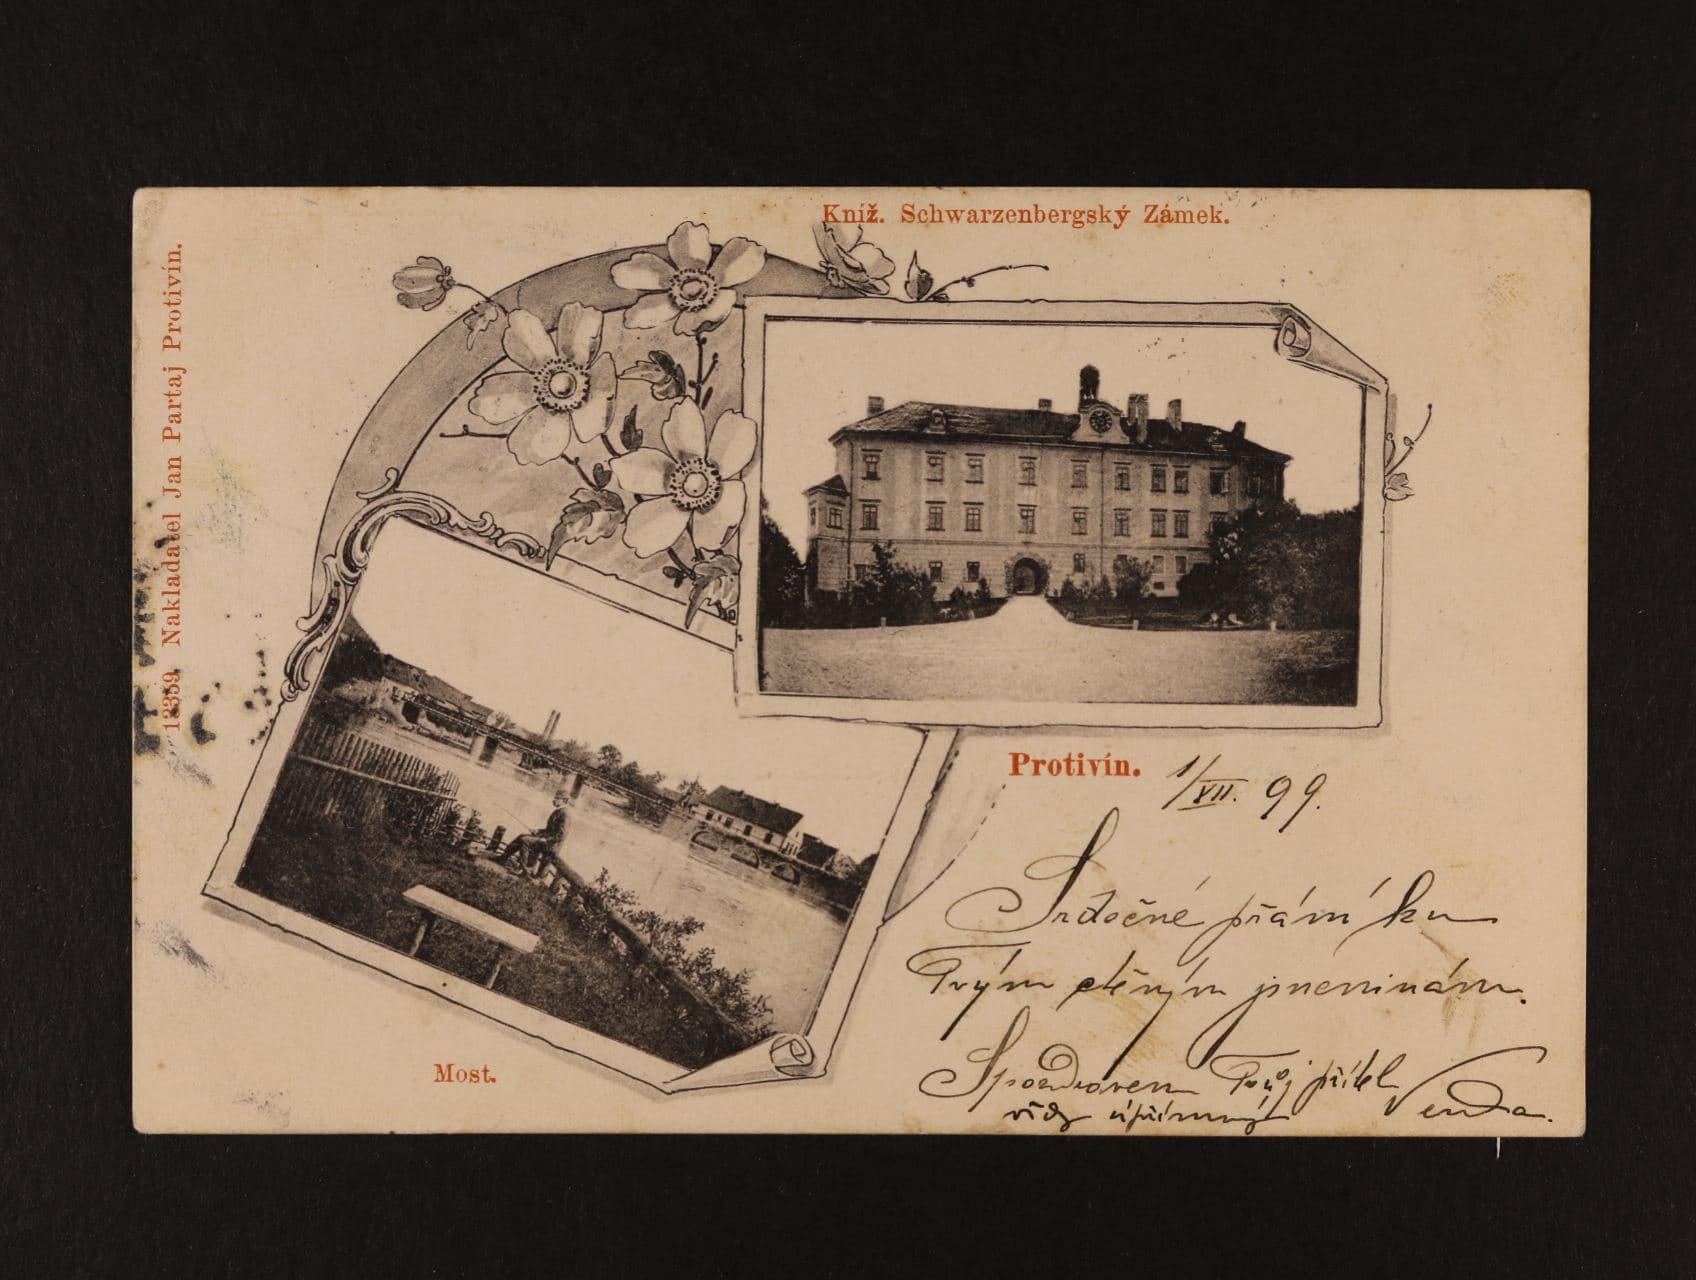 Kníž. Schwarzenbergský Zámek.
13359. Nakladatel Jan Partaj Protivín.
Protivín. 1/VII. 99.
Srdečné přání ku
Tvým ctěným jmeninám.
Spozdraven Tvůj přítel
vždy úpřímný Venda.
Most.